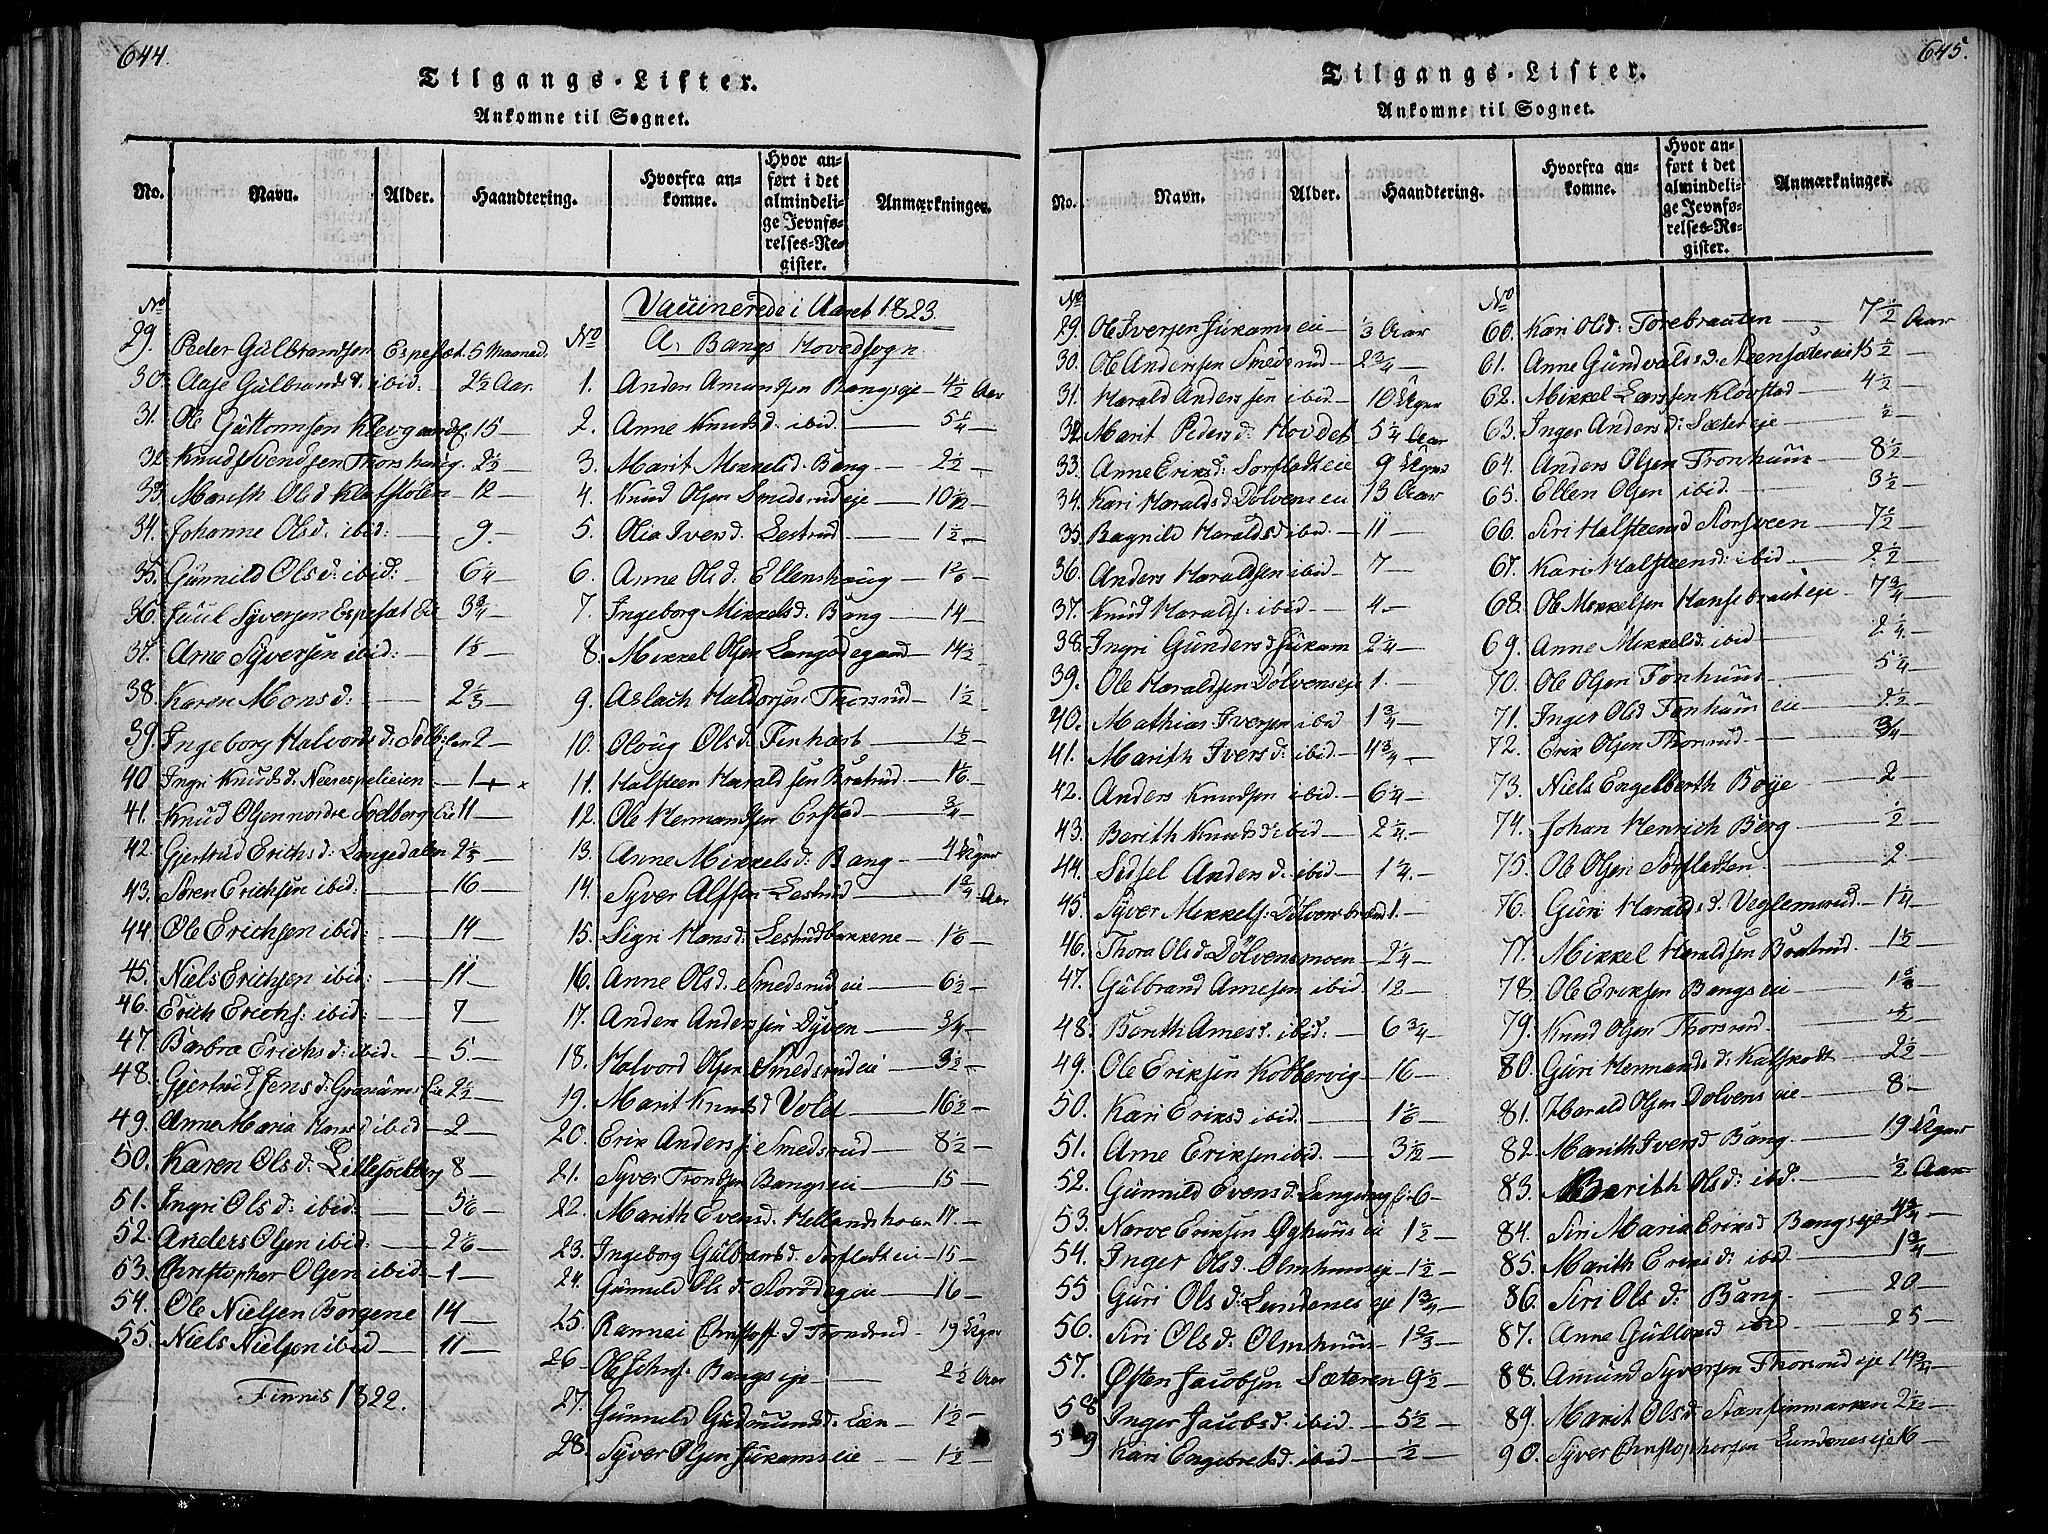 644.
Tilgangs-Lister.
Ankomne til Sognet.
No. Navn. Alder. Haandtering. Hvorfra ankomne. Hvor anført i det almindelige Jevnførelses-Register. Anmærkninger.
No
29. Peder Gulbrandsen Espesæt. 5 Maaned.
30. Aase Gulbrandsd. ibid. 2 1/2 Aar.
31. Ole Guttormsen Klevgaards. 15 —
32. Knud Svendsen Thorshaug. 2 1/2 —
33. Marith Olsd. 12 —
34. Johanne Olsd: ibid: — 9. —
35. Gunnild Olsd: ibid: 6 1/4 —
36. Juul Syversen Espesæt Eie 3 3/4 —
37. Arne Syversen ibid: —
38. Karen Monsd: — 2 1/3 —
39. Ingeborg Halvorsd: 2 —
40 Ingri Knudsd. — 1 —
41. Knud Olsen nordre Soelberg Eie 11 —
42. Gjertrud Erichsd: Langedalen 2 1/3 —
43. Søren Erichsen ibid: — 16 —
44. Ole Erichsen ibid: — 14 —
45. Niels Erichsen ibid: — 11 —
46. Erich Erichs: ibid: — 7 —
47 Barbra Erichsd: ibid. — 5. —
48. Gjertrud Jensd: Eie 2 1/2 —
49. Anne Maria Hansd ibid — 2 —
50. Karen Olsd: Lillesoelberg 8 —
51. Ingri Olsd: ibid: — 5 1/6 —
52. Anders Olsen ibid: — 2 1/6 —
53. Christopher Olsen ibid — 1 —
54. Ole Nielsen Borgene 14 —
55. Niels Nielsen ibid — 11 —
Finnis 1822.
Vaccinerede i Aaret 1823.
No A. Bangs Hovedsogn.
1. Anders Amundsen Bangseje — 4 1/2 Aar
2. Anne Knudsd. ibid. — 5 1/4 —
3. Marit Mikkelsd. Bang — 2 1/2 —
4. Knud Olsen Smedsrudeje — 10 1/12 —
5. Olia Iversd. Lestrud — 1 1/2 —
6. Anne Olsd: Ellenshaug —
7. Ingeborg Mikkelsd: Bang — 14 —
8. Mikkel Olsen Langødegaard — 14 1/2 —
9. Aslach Haldorsen Thorsrud — 1 1/2 —
10. Oloug Olsd: Finhart — 1 1/2 —
11. Halsteen Haraldsen Bratrud. — 1 1/6 —
12. Ole Hermandsen Erstad — 3/4 —
13. Anne Mikkelsd: Bang — 4 Uger
14. Syver Alfsen Lestrud — 1 3/4 Aar
15. Sigri Hansd: Lestrudbakkene — 1 1/6 —
16. Anne Olsd. Smedsrud eie — 6 1/2 —
17. Anders Andersen Dyven — 3/4 —
18. Halvord Olsen Smedsrud eie — 3 1/2 —
19. Marit Knudsd Vold — 16 1/2 —
20. Erik Anders: Smedsrud — 8 1/2 —
21. Syver Trondsen Bangseie — 15 —
22. Marith Evensd. 17. —
23. Ingeborg Gulbransd: Sørfladteie — 15 —
24. Gunnild Olsd. — 16 —
25. Rannei Christoffd Trondrud. — 19 Uger
26 Ole Bangseje — 2 1/2 Aar
27. Gunnild Gudmundsd. Lien — 1 1/2 —
28. Syver Olsen Jukamseie — 1 1/2 —
645.
Tilgangs-Lister.
Ankomne til Sognet.
No. Navn. Alder. Haandtering. Hvorfra ankomne. Hvor anført i det almindelige Jevnførelses-Register. Anmærkninger.
No
29. Ole Iversen Jukams eie — 1/3 Aar
30. Ole Andersen Smedsrud — 2 3/4 —
31. Harald Andersen ibid — 10 Uger
32. Marit Pedersd: Hovdet 5 1/4 Aar
33. Anne Eriksd: Sørfladteie 9 Uger
34. Kari Haraldsd Dølvens eie 13 Aar
35. Bagnild Haraldsd ibid — 11 —
36. Anders Haraldsen ibid — 7 —
37. Knud Haralds: ibid — 4. —
38. Ingri Gundersd Jukam 2 1/4 —
39. Ole Haraldsen Dølvenseje 1. —
40. Mathias Iversen ibid 1 3/4 —
41. Marith Iversd: ibid. 4 3/4 —
42. Anders Knudsen ibid. 6 1/4 —
43. Berith Knudsd: ibid — 2 1/4. —
44. Sidsel Andersd: ibid — 1 1/4. —
45. Syver Mikkels: 1. —
46. Thora Olsd: Dølvensmoen — 2 1/4 —
47. Gulbrand Arnesen ibid. 12 —
48. Berith Arnesd: ibid: — 6 3/4 —
49. Ole Eriksen Kobbervig — 16 —
50. Kari Eriksd ibid. — 1 1/6 —
51. Arne Eriksen ibid. — 3 1/12 —
52. Gunnild Evensd: 6 —
53. Narve Eriksen eie 1 1/2 —
54. Inger Olsd. Olmhuuseje — 1 1/2 —
55 Guri Olsd: Lundenes eje 1 3/4 —
56. Siri Olsd: Olmhuus — 1 2/3 —
57. Østen Jacobsen Sæteren — 9 1/2 —
58 Inger Jacobsd: ibid. — 5 1/2 —
59 Kari Engebretsd: ibid — 1/2 —
No
60. Kari Olsd: Torebraaten — 7 1/2 Aar
61. Anne Gundvalsd. 15 1/2 —
62. Mikkel Larsen Klørstad — 4 1/2 —
63. Inger Andersd: Sætereje — 1/2 —
64. Anders Olsen Tronhuus — 8 1/2 —
65. Ellen Olsen ibid. — 3 1/2 —
66. Siri Halsteensd Storsveen —
67. Kari Halsteensd: ibid — 2 1/2 —
68. Ole Mikkelsen 7 3/4 —
69. Anne Mikkelsd. ibid — 2 1/4 —
70. Ole Olsen Tonhuus — 5 1/4 —
71. Inger Olsd Tonhuus eie —
72. Erik Olsen Thorsrud. — 3/4 —
73. Niels Engelberth Boye — 2. —
74. Johan Henrich Berg — 1/2 —
75. Ole Olsen Sørfladten — 2. —
76. Guri Haraldsd. Veglemsrud. 1 1/4 —
77. Mikkel Haraldsen Bratrud. 1 1/2 —
78. Ole Eriksen Bangs eie —
79. Knud Olsen Thorsrud. — 1/2 —
80. Guri Hermandsd: — 2 1/2 —
81. Harald Olsen Dølvens eie — 8. —
82. Marith Iversd Bang. — 19 Uger
83. Berith Olsd: ibd. 1/2 Aar
84. Siri Maria Eriksd Bangseje 4 3/4 —
85. Marith Eriksd: ibid — 1 3/4 —
86. Siri Olsd: Bang. — 20 —
87. Anne — 25 —
88. Amund Syversen Thorsrudeje 14 3/4 —
89. Marit Olsd: 2 1/2 —
90. Syver Christophersen Lundeneseje 16 —